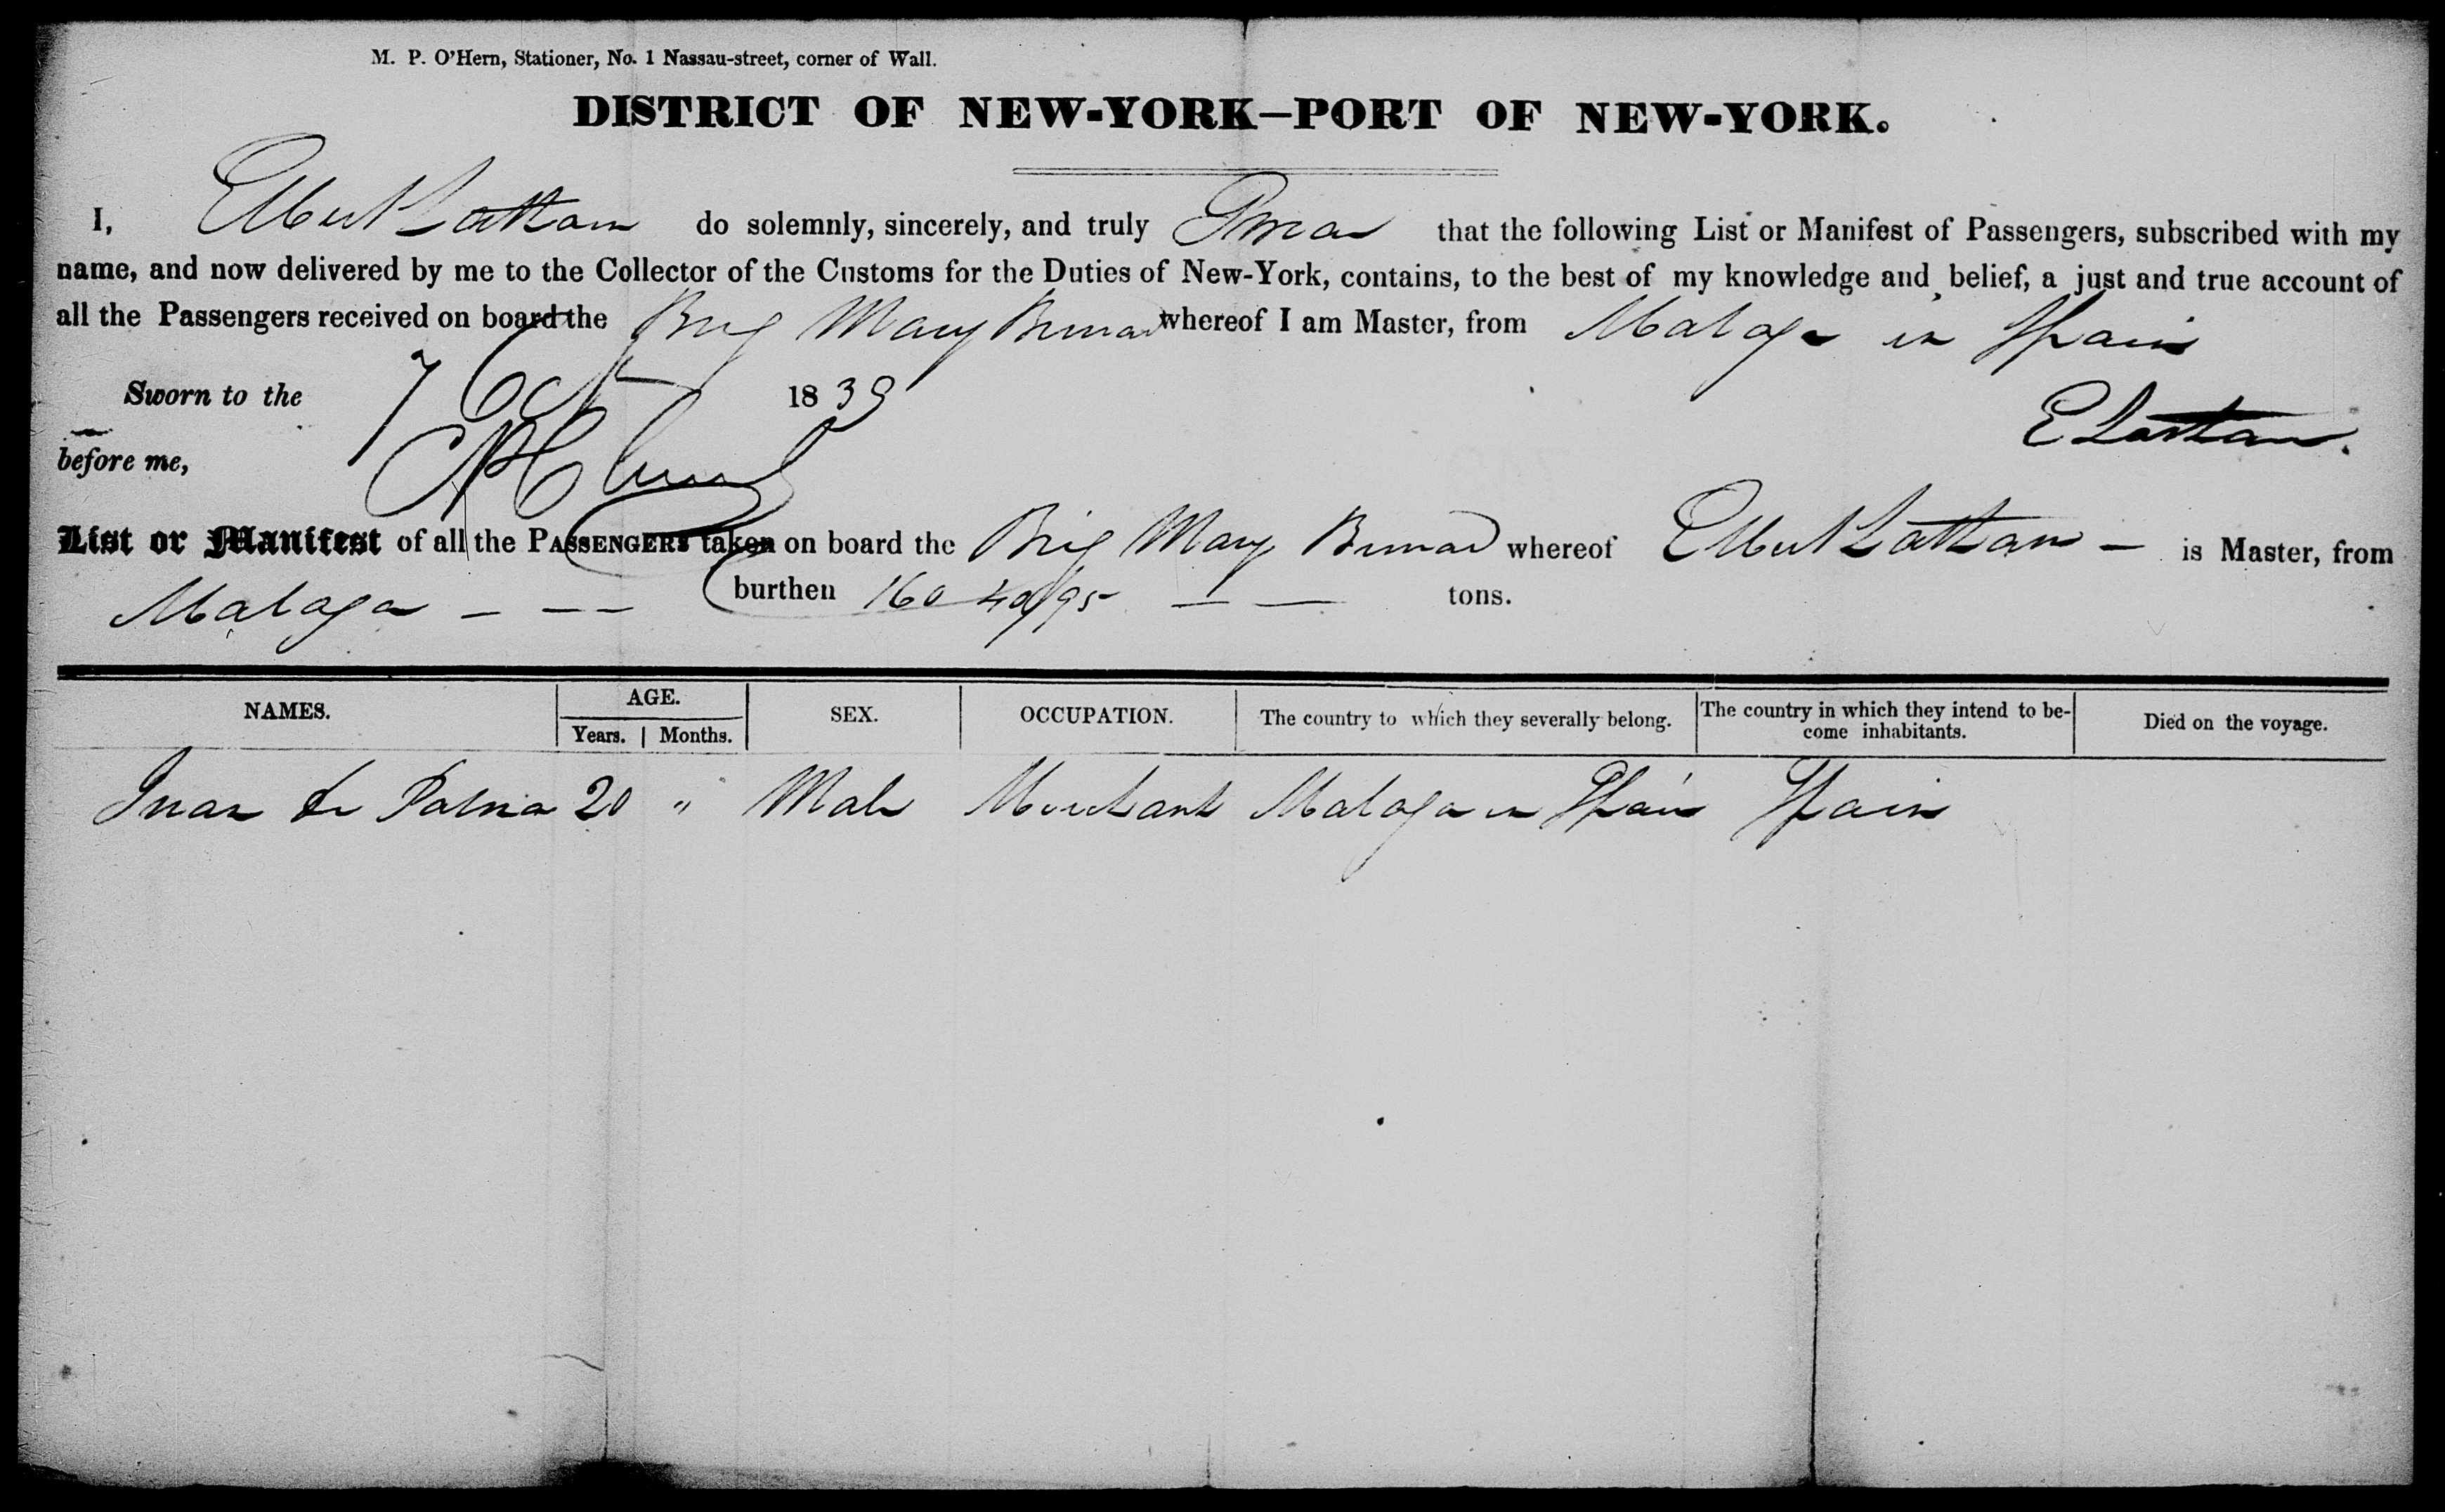 M. P. O'Hern, Stationer, No. 1 Nassau-street, corner of Wall.
DISTRICT OF NEW-YORK—PORT OF NEW-YORK.
I, Elbert Latham do solemnly, sincerely, and truly swear that the following List or Manifest of Passengers, subscribed with my
name, and now delivered by me to the Collector of the Customs for the Duties of New-York, contains, to the best of my knowledge and belief, a just and true account of
all the Passengers received on board the Brig Mary whereof I am Master, from Malaga in Spain
Sworn to the 7 Oct 1839
E Latham.
before me,
List or Manifest of all the PASSENGERS taken on board the Brig Mary whereof Elbert Latham — is Master, from
Malaga — — — burthen 160 40/95 — — tons.
NAMES. AGE. SEX. OCCUPATION. The country to which they severally belong. The country in which they intend to be-
come inhabitants. Died on the voyage.
Years. Months.
Juan de Palma 20 " Male Merchant Malaga in Spain Spain